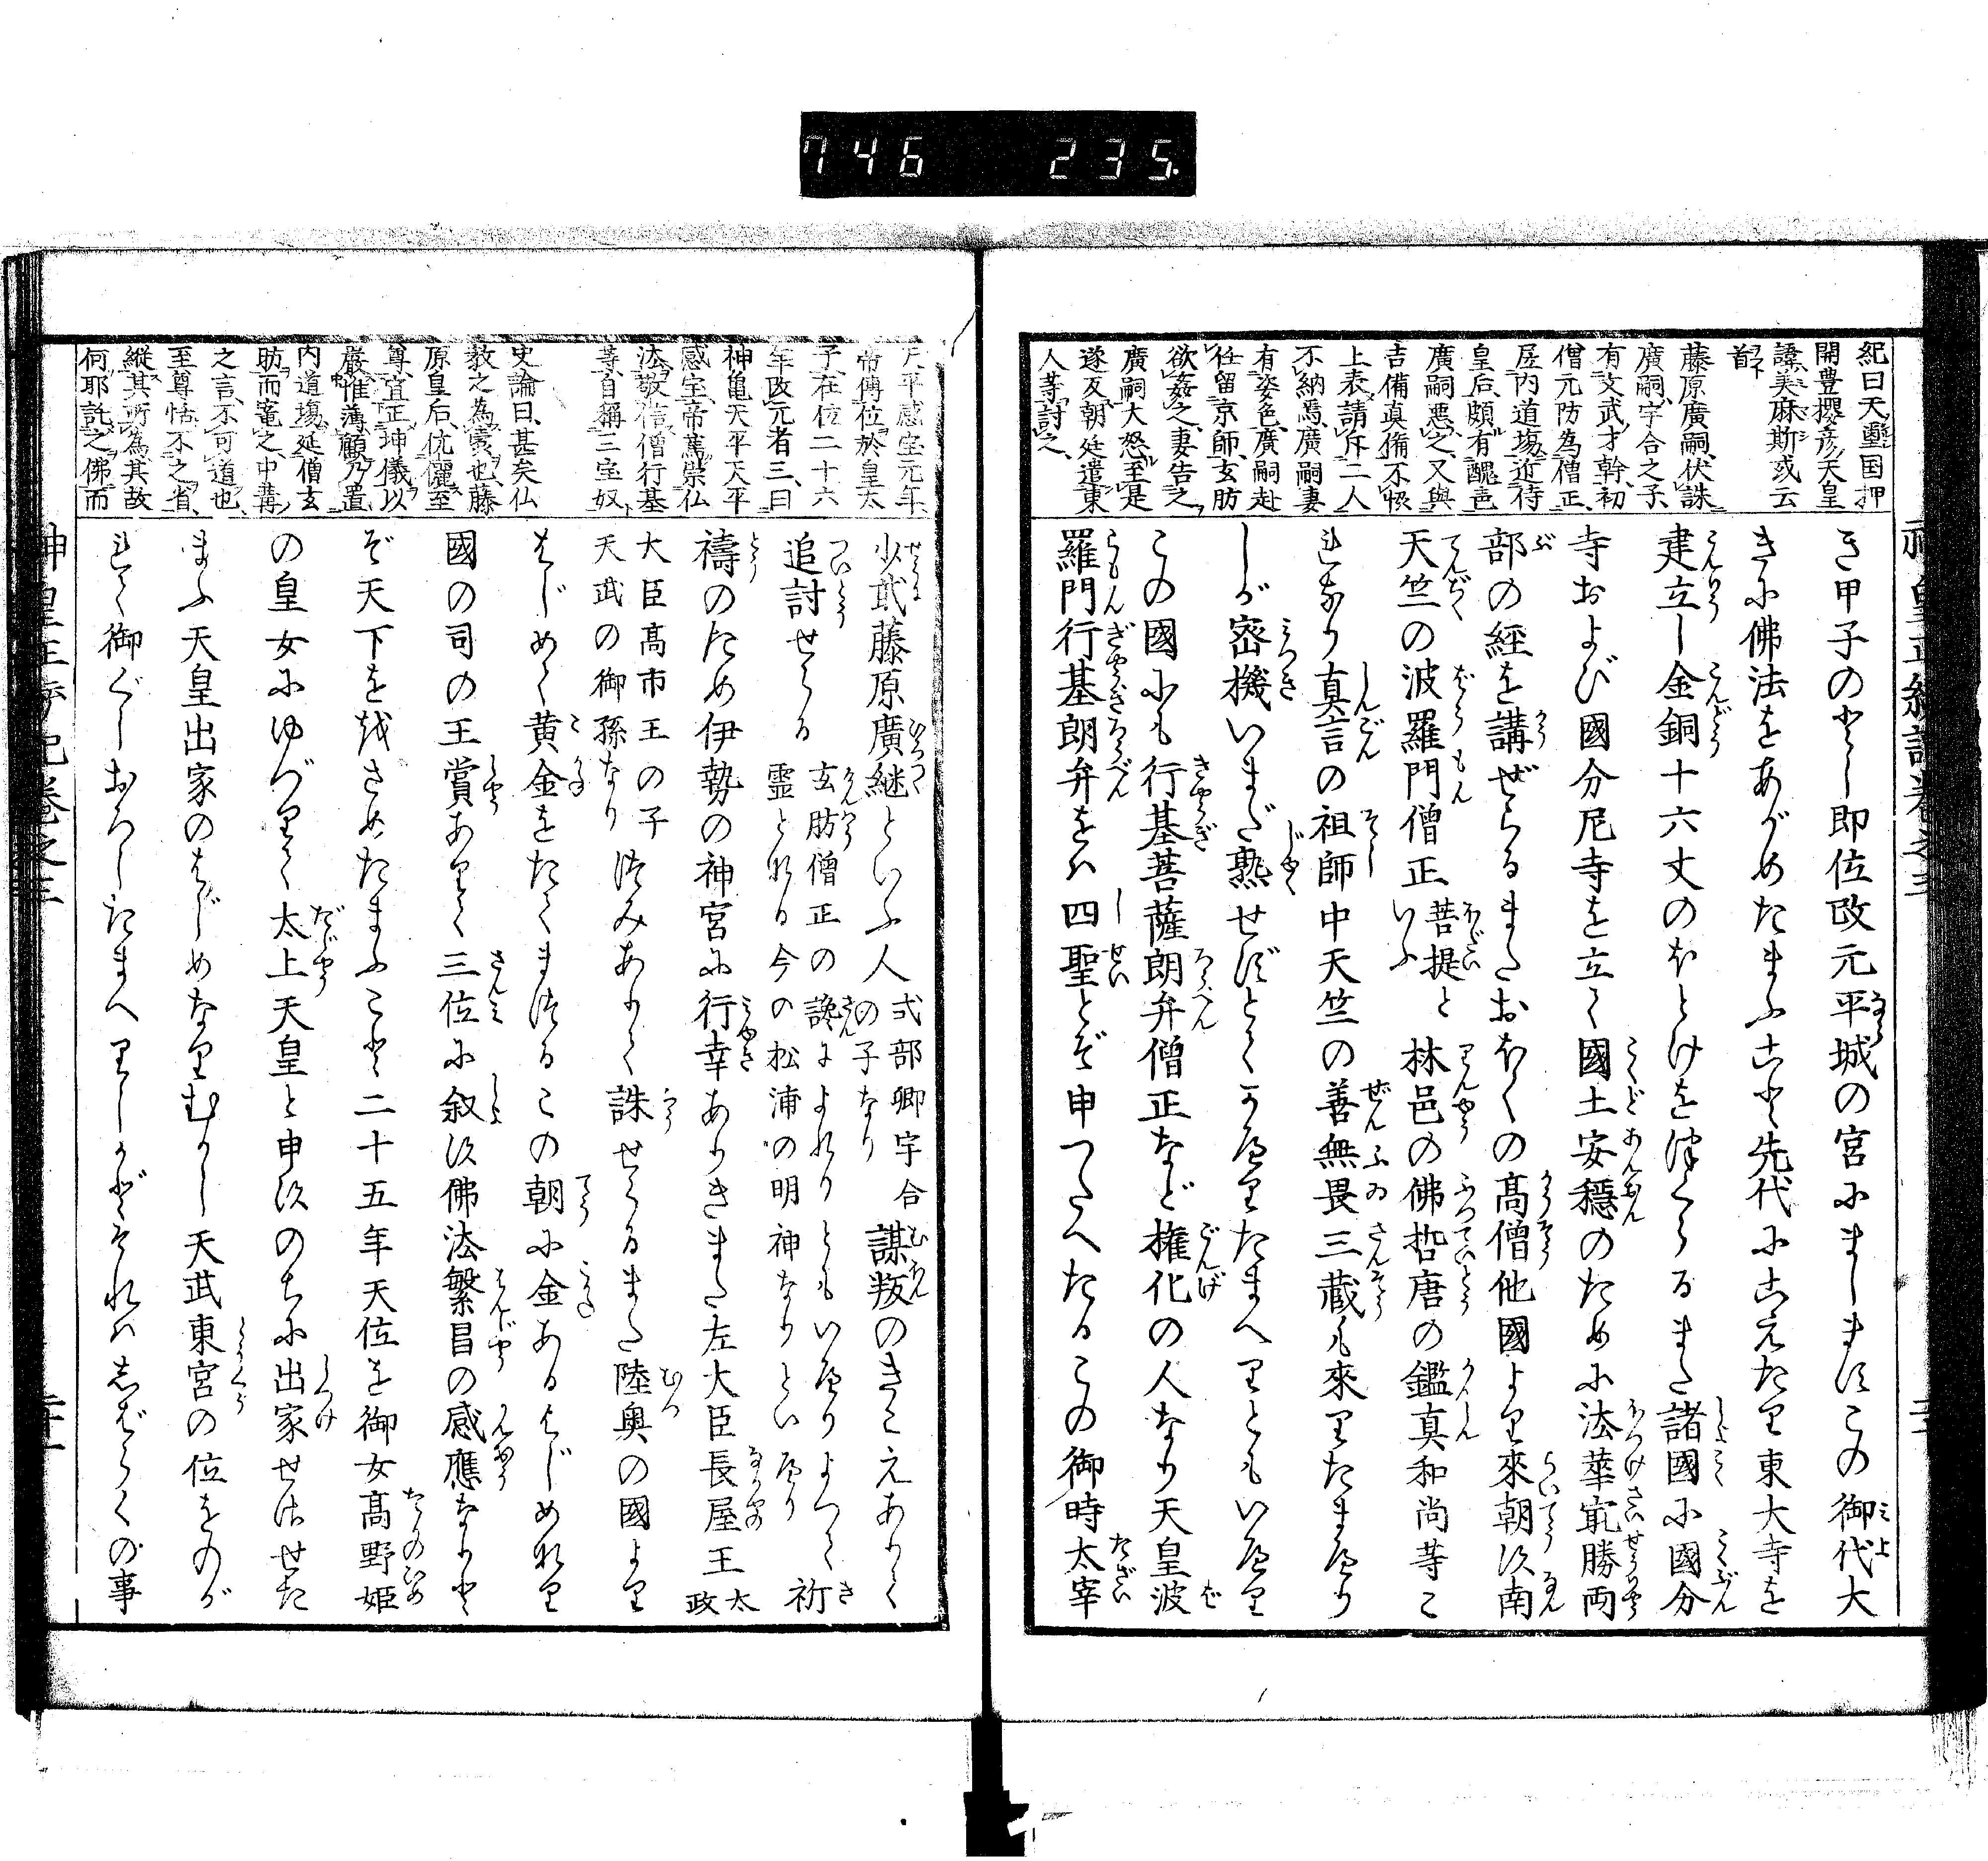 746 235.
紀曰天璽国押
開豊櫻彦天皇
諱美麻斯或云
首
藤原廣嗣伏誅
廣嗣宇合之子
有文武才幹初
僧元防為僧正
居内道塲近侍
皇后頗有醜色
廣嗣悪之又與
吉備真備不恢
上表請斥二人
不納焉廣嗣妻
有姿色廣嗣赴
任留京師玄肪
欲姦之妻告之
廣嗣大怒至是
遂反朝廷遣東
人等討之
き甲子のとし即位改元平城の宮にましますこの御代大
きに佛法をあがめたまふこと先代にこえたり東大寺を
建立し金銅十六丈のほとけをつくらるまた諸國に國分
寺および國分尼寺を立て國土安穏のために法華㝡勝両
部の経を講ぜらるまたおほくの髙僧他國より來朝す南
天竺の波羅門僧正菩提といふ林邑の佛哲唐の鑑真和尚等こ
れなり真言の祖師中天竺の善無畏三蔵も來りたまへり
しが密機いまだ熟せずとてかへりたまへりともいへり
この國にも行基菩薩朗弁僧正など権化の人なり天皇波
羅門行基朗弁をハ四聖とぞ申つたへたるこの御時太宰
天平感宝元年
帝傳位於皇太
子在位二十六
年改元者三曰
神亀天平天平
感宝帝篤崇仏
法敬信僧行基
等自稱三宝奴
史論曰甚矣仏
教之為害也藤
原皇后伉儷至
尊宜正坤儀以
嚴惟薄顧乃置
内道塲延僧玄
肪而竜之中冓
之言不可道也
至尊恬不之省
縦其所為其故
何耶託之佛而
少貮藤原廣継といふ人式部卿宇合の子なり謀叛のきこえありて
追討せらる玄肪僧正の讒によれりともいへりよつて祈
霊となる今の松浦の明神なりといへり
禱のため伊勢の神宮に行幸ありきまた左大臣長屋王太政
大臣髙市王の子天武の御孫なりつみありて誅せらるまた陸奥の國より
はじめて黄金をたてまつるこの朝に金あるはじめなり
國の司の王賞ありて三位に叙す佛法繁昌の感應なりと
ぞ天下をおさめたまふこと二十五年天位を御女髙野姫
の皇女にゆづりて太上天皇と申すのちに出家せさせた
まふ天皇出家のはじめなりむかし天武東宮の位をのが
れて御ぐしおろしたまへりしかどそれハしばらくの事